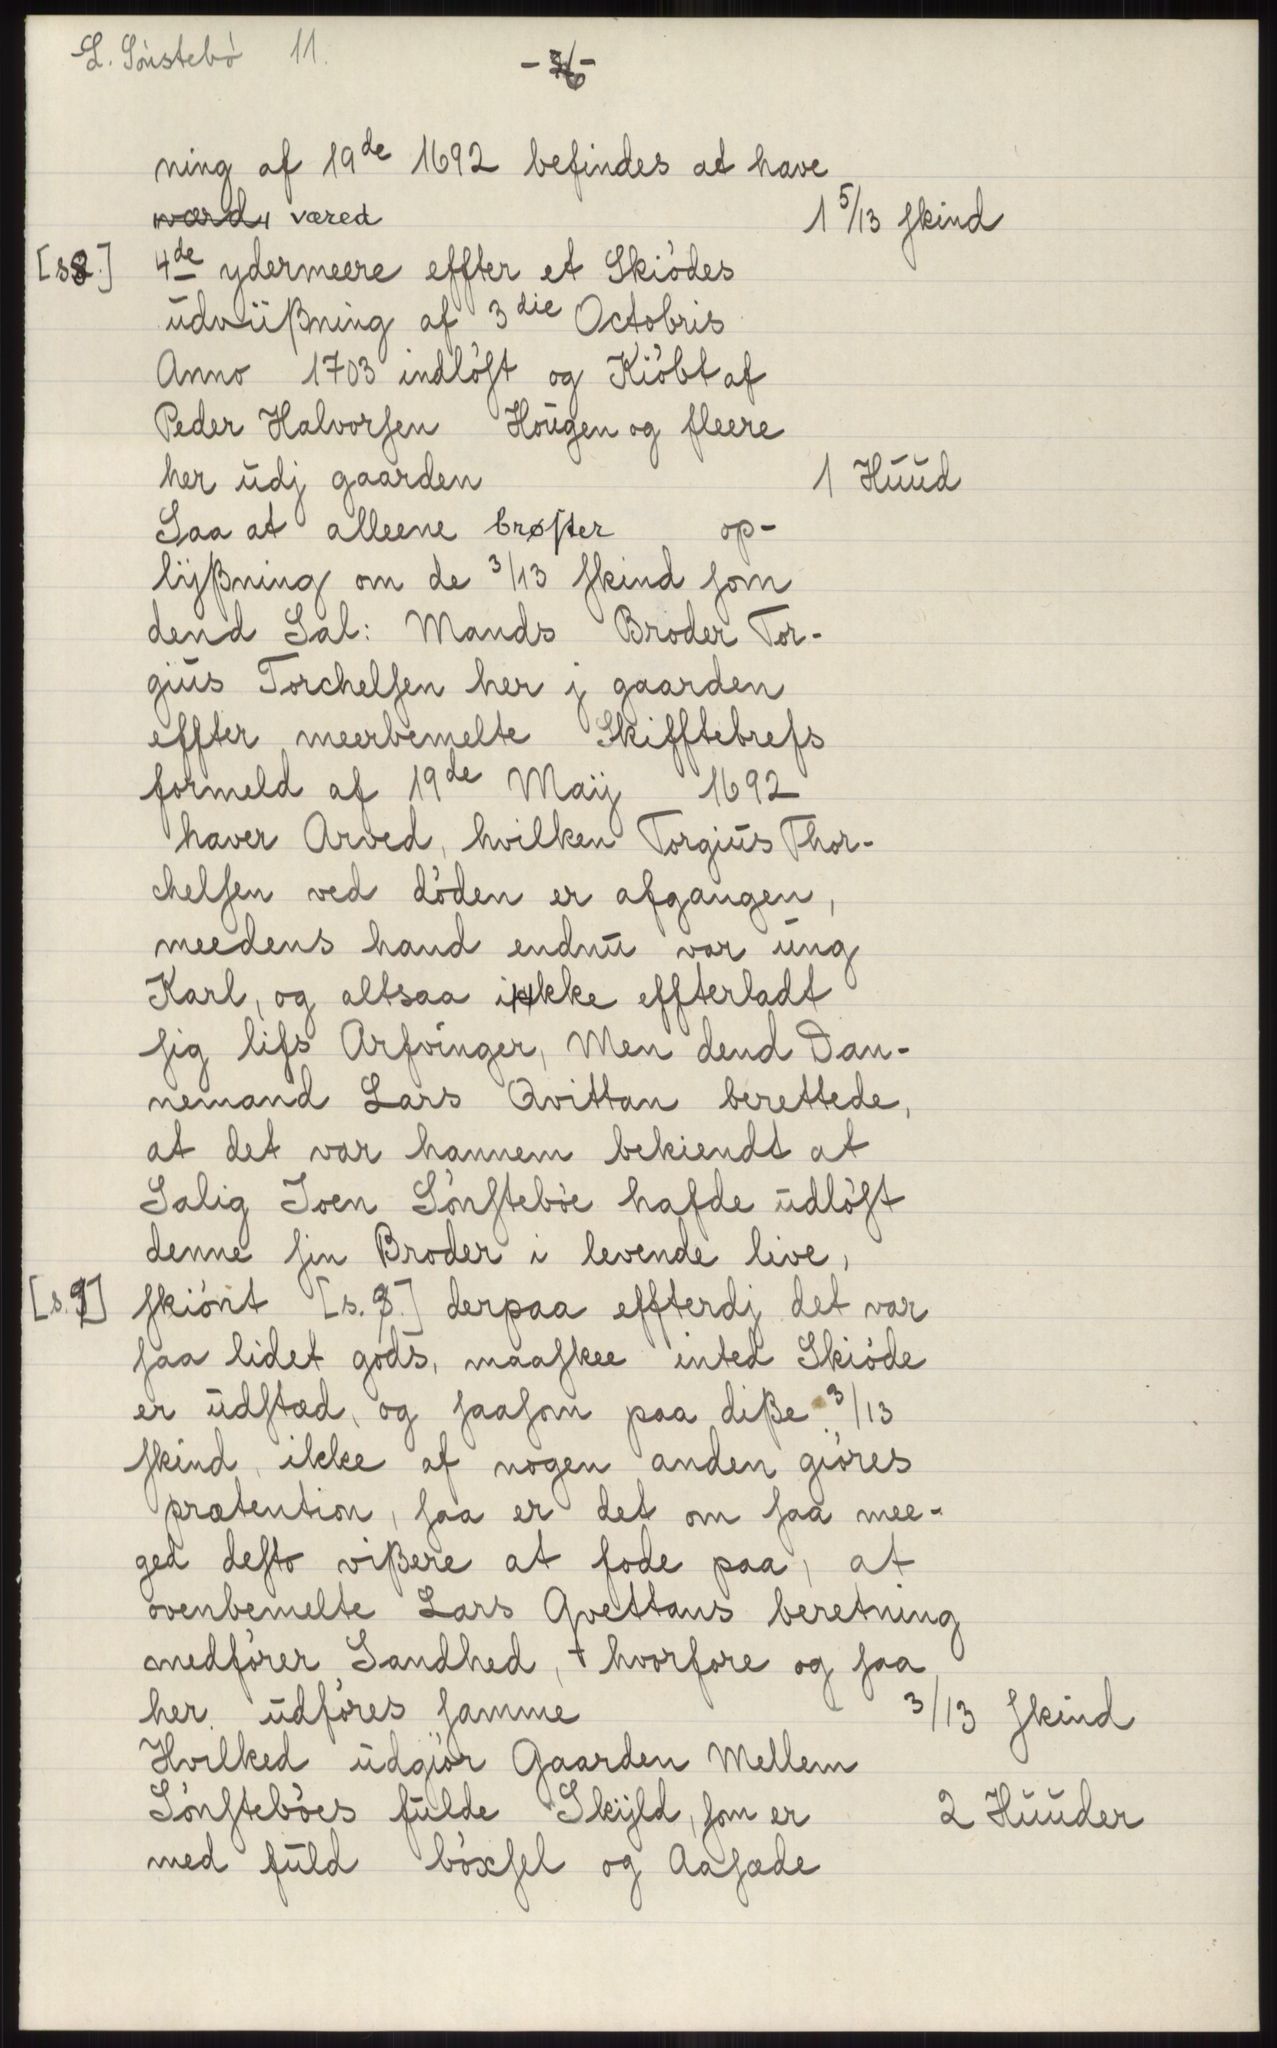 L. Sönstebö 11.
- 6 -
ning af 19de 1692 befindes at have
værd, væred 1 5/13 skind
[s 8.] 4de ydermeere effter et Skiödes
üdvüßning af 3die Octobris
Anno 1703 indlöst og Kiöbt af
Peder Halvorsen Hoügen og fleere
her üdj gaarden 1 Hüüd
Saa at alleene brøster op-
lÿßning om de 3/13 skind som
dend Sal: Mands Broder Tor-
giüs Torchelsen her j gaarden
effter meerbemelte Skifftebrefs
formeld af 19de Maÿ 1692
haver Arved, hvilken Torgiüs Thor-
chelsen ved döden er afgangen,
meedens hand endnü var üng
Karl, og altsaa ikke effterladt
sig lifs Arfvinger, Men dend Dan-
nemand Lars Qvittan berettede,
at det var hannem bekiendt at
Salig Joen Sönsteböe hafde üdlöst
denne sin Broder i levende live,
[s. 9] skiönt [s. 9.] derpaa effterdj det var
saa lidet gods, maaskee inted Skiöde
er üdstæd, og saasom paa diße 3/13
skind, ikke af nogen anden giöres
prætention, saa er det om saa mee-
ged desto vißere at fode paa, at
ovenbemelte Lars Qvettans beretning
medförer Sandhed, + hvorfore og saa
her üdföres samme 3/13 skind
Hvilked üdgiör Gaarden Mellem
Sönsteböes fülde Skÿld, som er 2 Hüüder
med füld böxsel og Aasæde